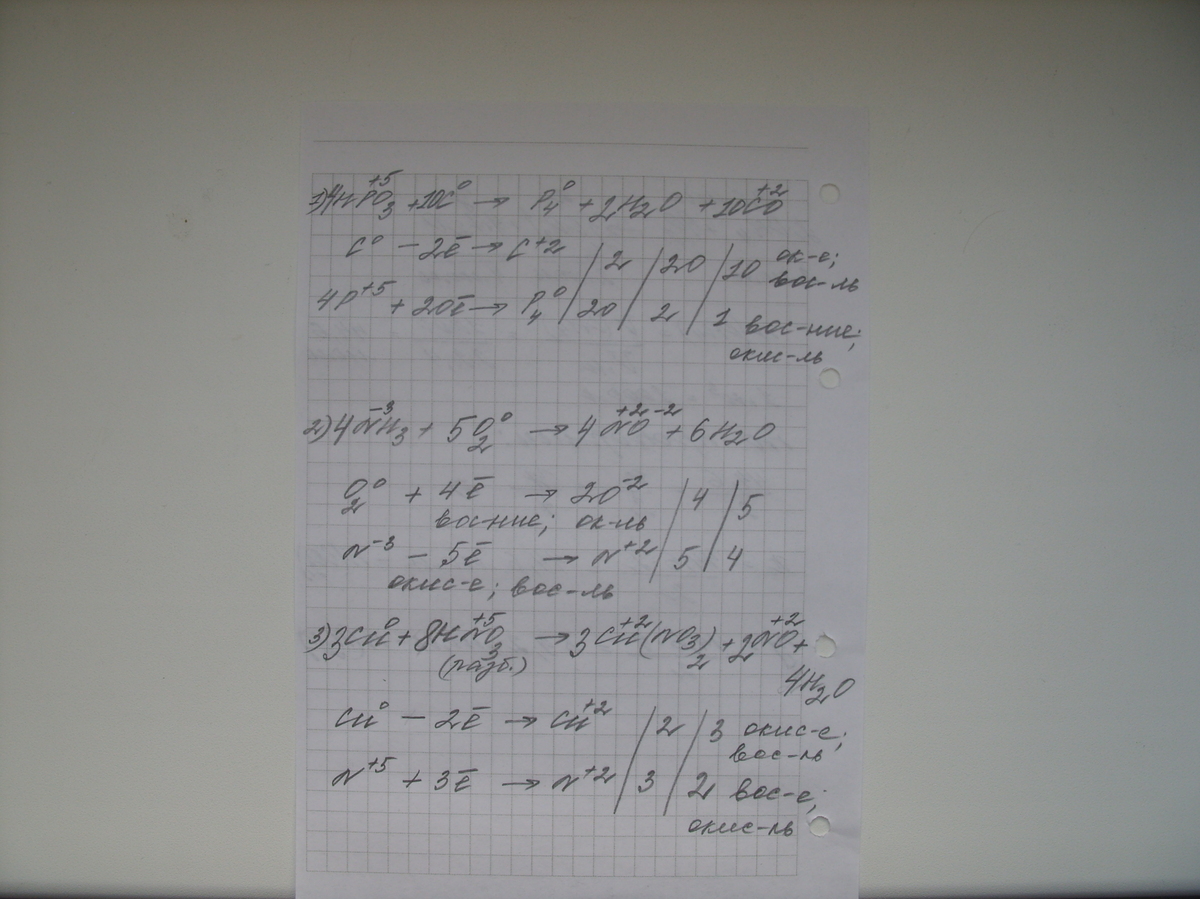 1) 4HP⁺⁵O₃ + 10C⁰ → P₄⁰ + 2H₂O + 10C⁺²O
C⁰ – 2ē → C⁺² / 2 / 20 / 10 ок-е;
вос-ль
4P⁺⁵ + 20ē → P₄⁰ / 20 / 2 / 1 вос-ние;
окис-ль
2) 4N⁻³H₃ + 5O₂⁰ → 4N⁺²O⁻² + 6H₂O
O₂⁰ + 4ē → 2O⁻² / 4 / 5
вос-ние; ок-ль
N⁻³ – 5ē → N⁺² / 5 / 4
окис-е; вос-ль
3) 3Cu⁰ + 8HN⁺⁵O₃ → 3Cu⁺²(NO₃)₂ + 2N⁺²O +
(разб.)
4H₂O
Cu⁰ – 2ē → Cu⁺² / 2 / 3 окис-е;
вос-ль
N⁺⁵ + 3ē → N⁺² / 3 / 2 вос-е;
окис-ль